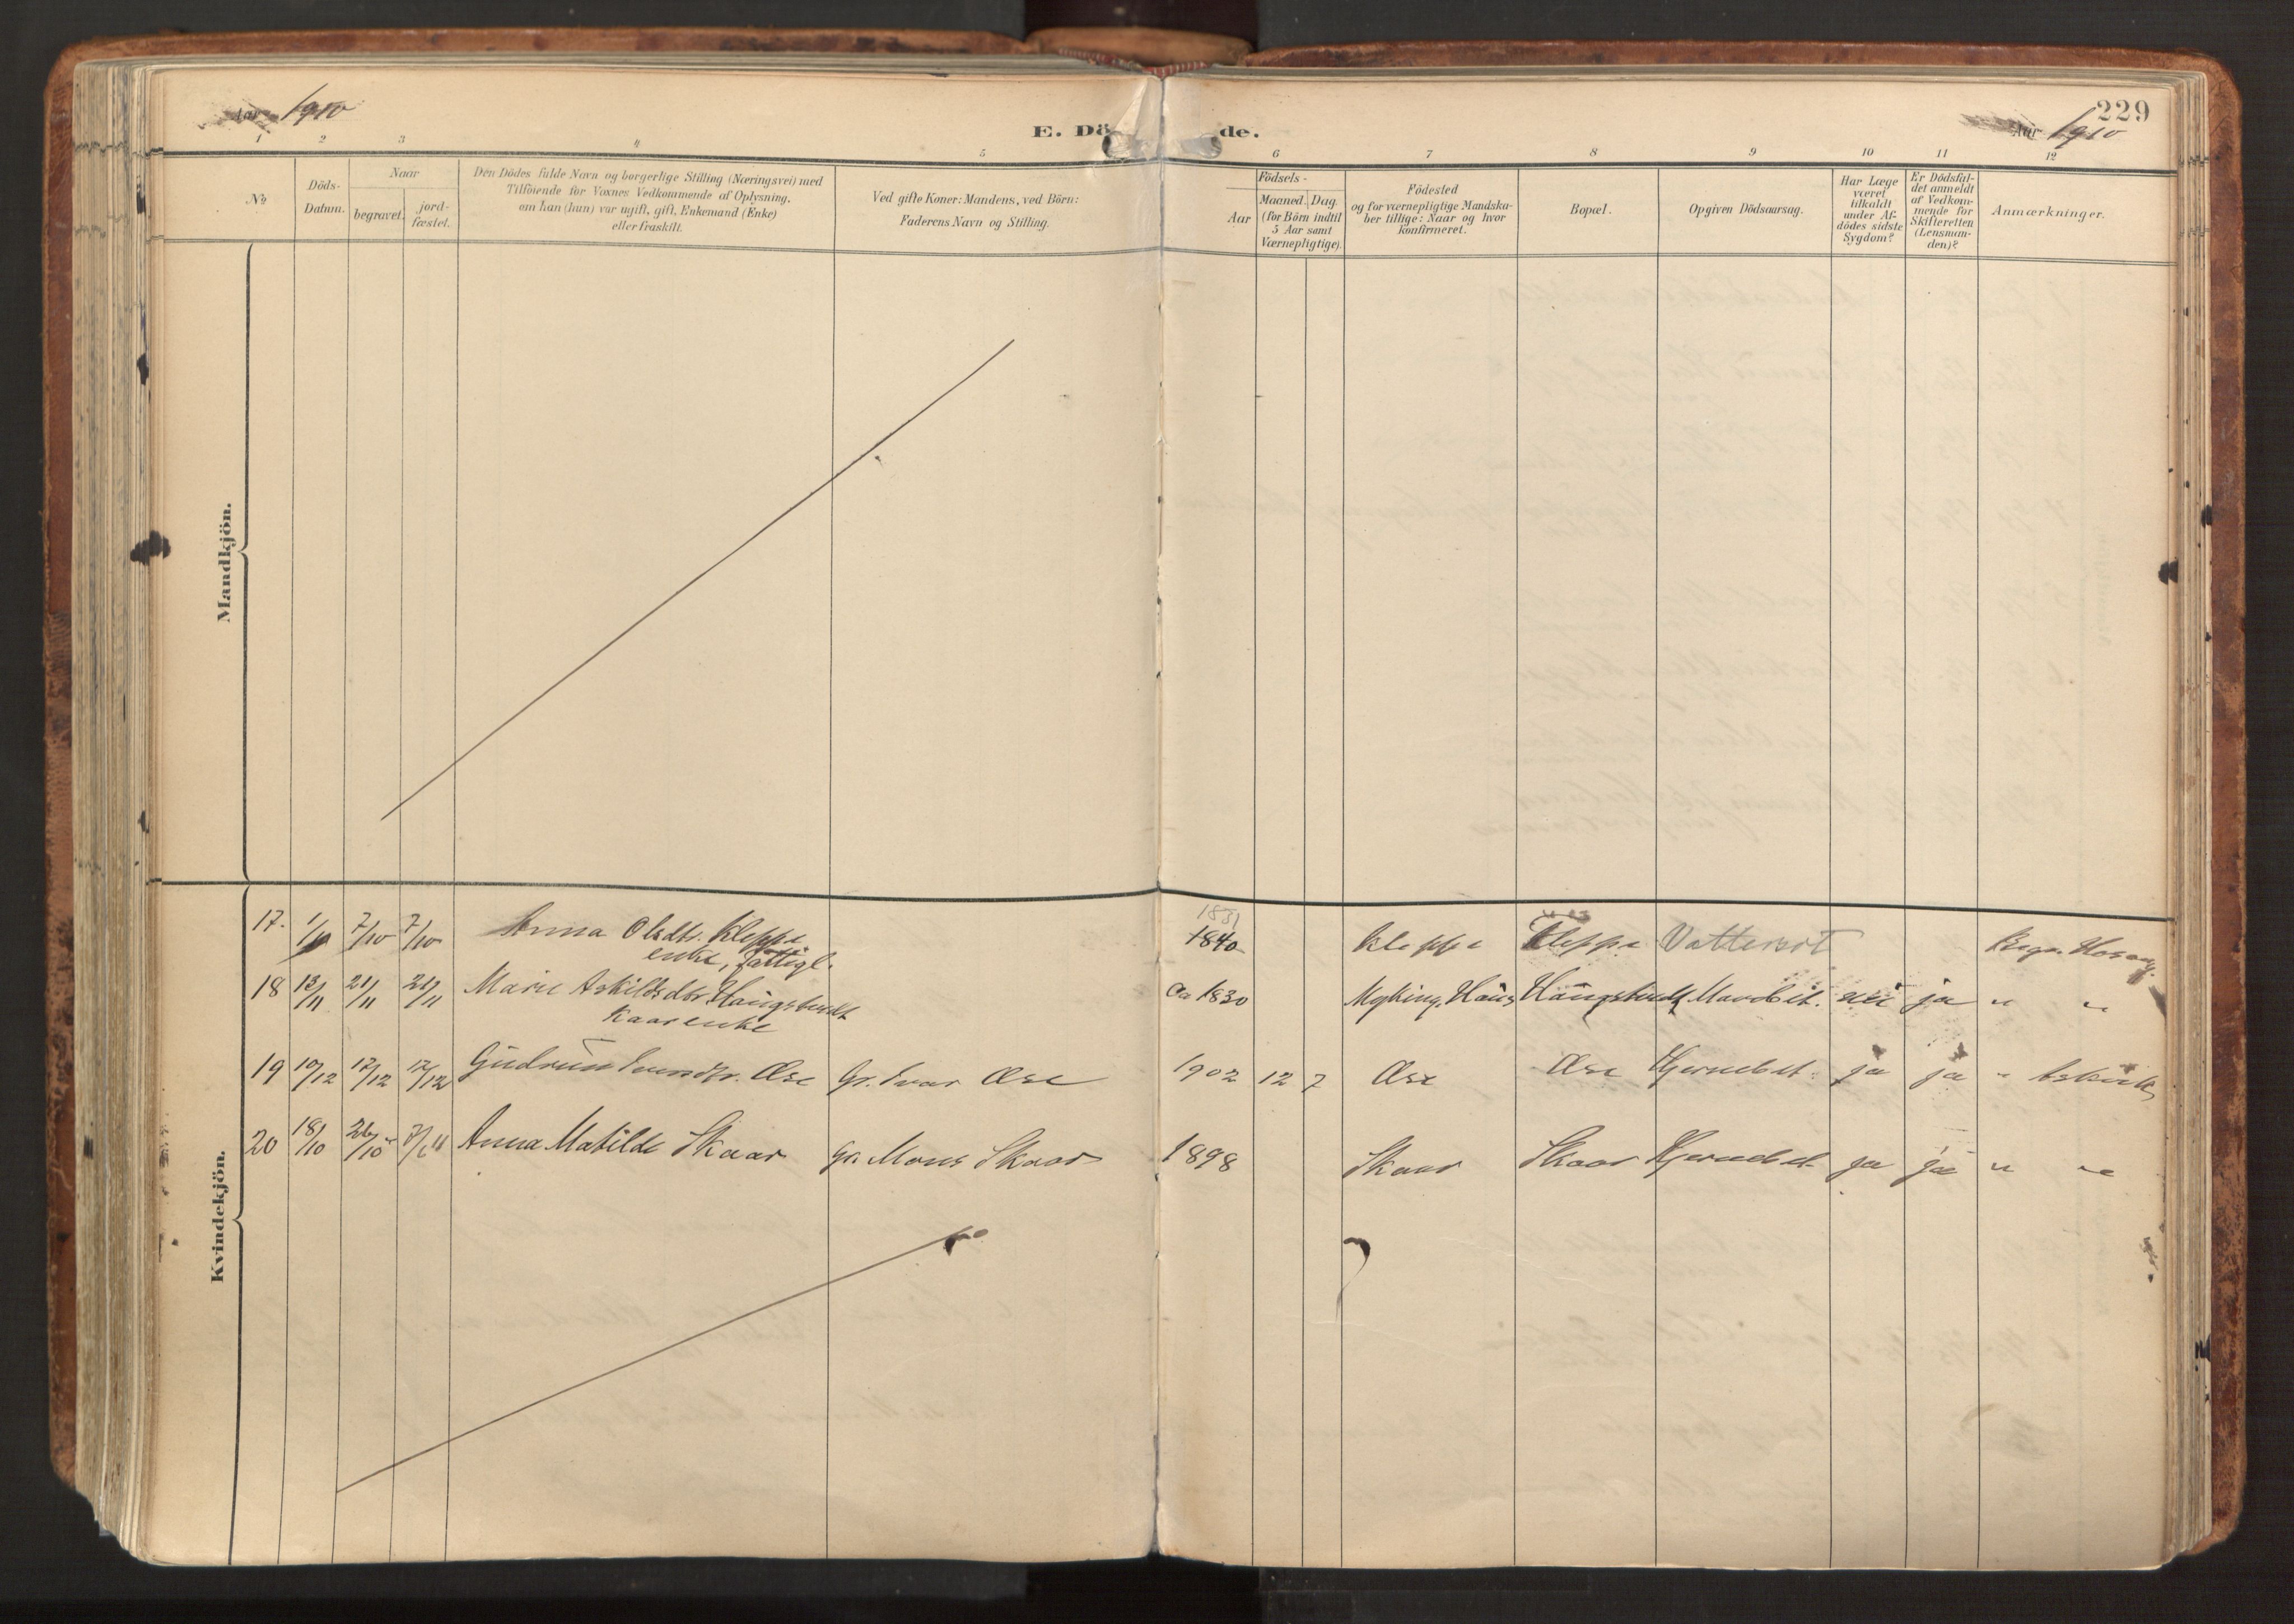 Aar 1910
E. Dö
de.
Aar 1910
229
1 2 3 4 5 6 7 8 9 10 11 12
No
Döds-
Datum.
Naar
begravet.
jord-
fæstet.
Den Dödes fulde Navn og borgerlige Stilling (Næringsvei) med
Tilföiende for Voxnes Vedkommende af Oplysning,
om han (hun) var ugift, gift, Enkemand (Enke)
eller fraskilt.
Ved gifte Koner: Mandens, ved Börn:
Faderens Navn og Stilling.
Aar
Födsels-
Maaned.
Dag.
(for Börn indtil
5 Aar samt
Værnepligtige).
Födested
og for værnepligtige Mandska-
ber tillige: Naar og hvor
konfirmeret.
Bopæl.
Opgiven Dödsaarsag.
Har Læge
været
tilkaldt
under Af-
dödes sidste
Sygdom?
Er Dödsfal-
det anmeldt
af Vedkom-
mende for
Skifteretten
(Lensman-
den)?
Anmærkninger.
Mandkjön.
Kvindekjön.
17. 1/10 7/10 7/10 Anna Olsdtr. Kleppe 1831
enke, fattigl. 1840 Kleppe Kleppe Vattersot Begr. Hosang.
18 13/11 21/11 21/11 Marie Askildsdtr Haugstvedt Ca 1830 Myking, Haus Haugstvedt Mavebet. nei ja " "
Kaarenke
19 10/12 17/12 17/12 Gudrun Ivarsdtr. Æse Gr. Ivar Æse 1902 12 7 Æse Æse Hjernebet. ja ja "
20 18/10 26/10 Anna Matilde Skaar Gr. Mons Skaar 1898 Skaar Skaar Hjernebet. ja ja " "